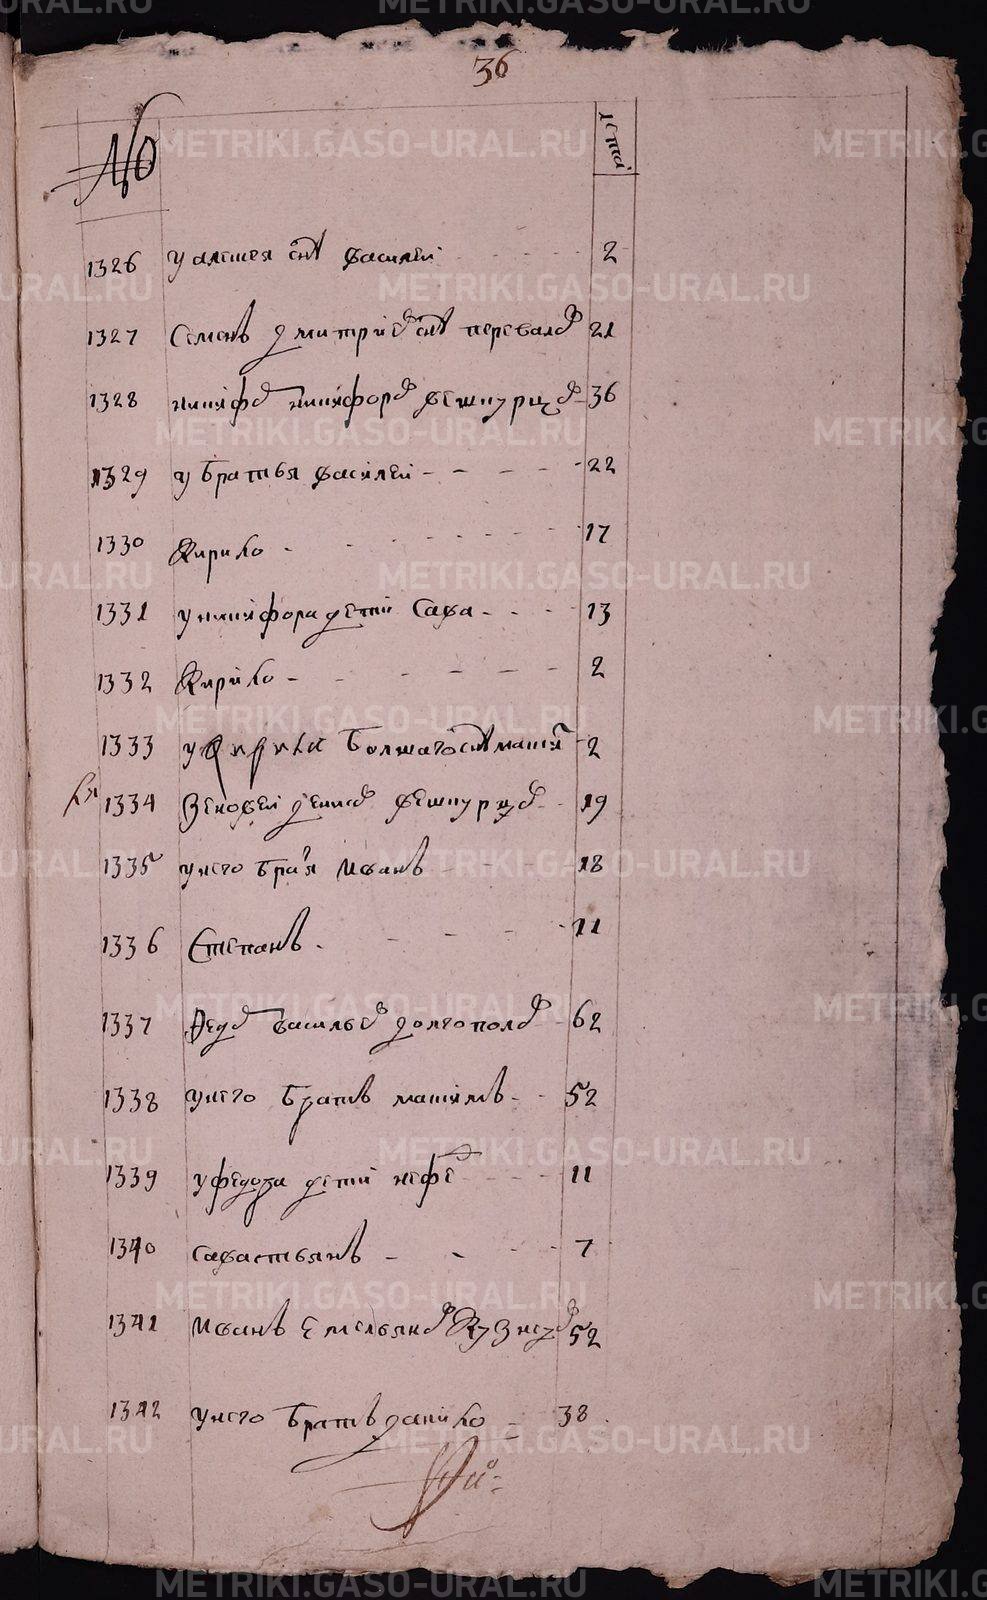 36
№ лета
1326 у алѣшея снъ василей 2
1327 Семенъ дмитриевъ снъ перевалов 21
1328 никифор никифоров вешнурцов 36
1329 у братья василей 22
1330 Кирило 17
1331 у никифора дети Сава 13
1332 Кирило 2
1333 у Кирила болшаго снъ матфей 2
1334 Зеновей денисов вешнурцов 19
1335 у него братья Иванъ 18
1336 Степанъ 11
1337 Федор васильев долгополов 62
1338 у него братъ максимъ 52
1339 у федора дети нефед 11
1340 савастьянъ 7
1341 Иванъ Емельянов Кузнецов 52
1342 у него братъ данило 38
METRIKI.GASO-URAL.RU